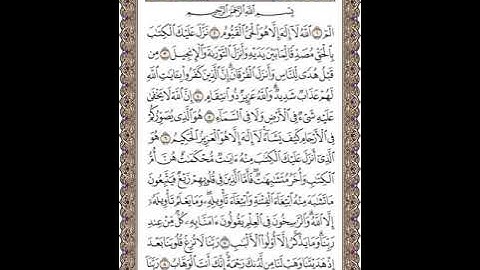 بِسْمِ اللَّهِ الرَّحْمَٰنِ الرَّحِيمِ
الٓمٓ ١ اللَّهُ لَا إِلَٰهَ إِلَّا هُوَ الْحَيُّ الْقَيُّومُ ٢ نَزَّلَ عَلَيْكَ الْكِتَٰبَ
بِالْحَقِّ مُصَدِّقًا لِّمَا بَيْنَ يَدَيْهِ وَأَنزَلَ التَّوْرَىٰةَ وَالْإِنجِيلَ ٣ مِن
قَبْلُ هُدًى لِّلنَّاسِ وَأَنزَلَ الْفُرْقَانَ إِنَّ الَّذِينَ كَفَرُوا بِـَٔايَٰتِ اللَّهِ
لَهُمْ عَذَابٌ شَدِيدٌ وَاللَّهُ عَزِيزٌ ذُو انتِقَامٍ ٤ إِنَّ اللَّهَ لَا يَخْفَىٰ
عَلَيْهِ شَىْءٌ فِي الْأَرْضِ وَلَا فِي السَّمَآءِ ٥ هُوَ الَّذِي يُصَوِّرُكُمْ
فِي الْأَرْحَامِ كَيْفَ يَشَآءُ لَا إِلَٰهَ إِلَّا هُوَ الْعَزِيزُ الْحَكِيمُ ٦ هُوَ
الَّذِي أَنزَلَ عَلَيْكَ الْكِتَٰبَ مِنْهُ ءَايَٰتٌ مُّحْكَمَٰتٌ هُنَّ أُمُّ
الْكِتَٰبِ وَأُخَرُ مُتَشَٰبِهَٰتٌ فَأَمَّا الَّذِينَ فِي قُلُوبِهِمْ زَيْغٌ فَيَتَّبِعُونَ
مَا تَشَٰبَهَ مِنْهُ ابْتِغَآءَ الْفِتْنَةِ وَابْتِغَآءَ تَأْوِيلِهِ وَمَا يَعْلَمُ تَأْوِيلَهُ
إِلَّا اللَّهُ وَالرَّٰسِخُونَ فِي الْعِلْمِ يَقُولُونَ ءَامَنَّا بِهِ كُلٌّ مِّنْ عِندِ
رَبِّنَا وَمَا يَذَّكَّرُ إِلَّا أُولُوا الْأَلْبَٰبِ ٧ رَبَّنَا لَا تُزِغْ قُلُوبَنَا بَعْدَ
إِذْ هَدَيْتَنَا وَهَبْ لَنَا مِن لَّدُنكَ رَحْمَةً إِنَّكَ أَنتَ الْوَهَّابُ ٨ رَبَّنَا